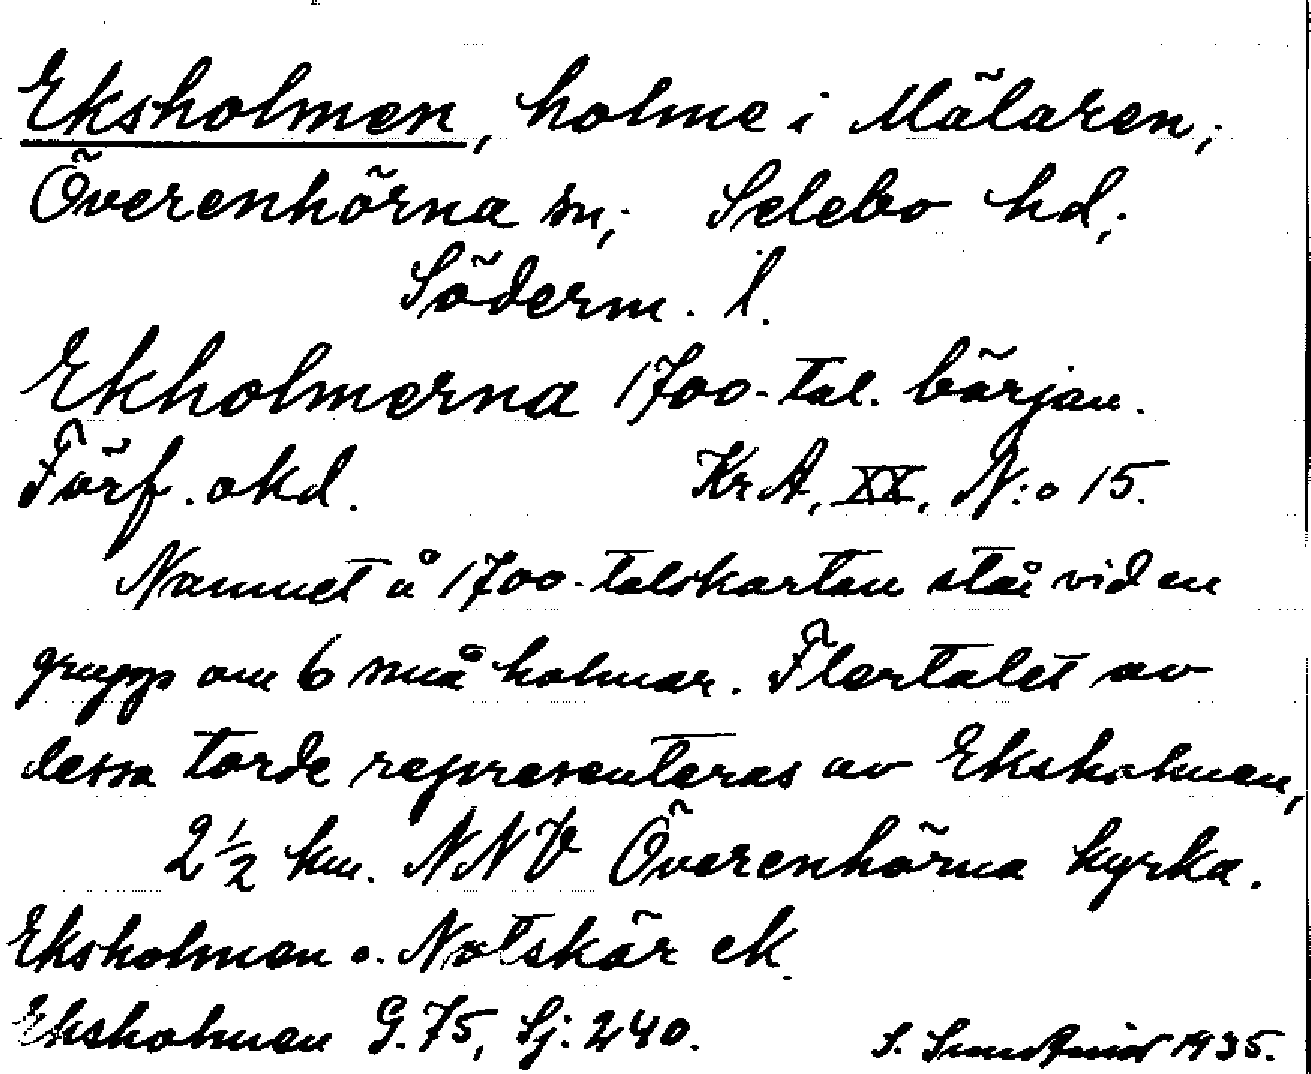 Eksholmen, holme i Mälaren,
Överenhörna sn, Selebo hd,
Söderm. l.
Ekholmerna 1700-tal. början.
Förf. okd. KrA, XX, N:o 15.
Namnet å 1700-talskartan står vid en
grupp om 6 små holmar. Flertalet av
dessa torde representeras av Eksholmen,
2½ km. NNV Överenhörna kyrka.
Eksholmen o. Notskär ek.
Eksholmen G. 75, Sj. 240.
S. 1935.